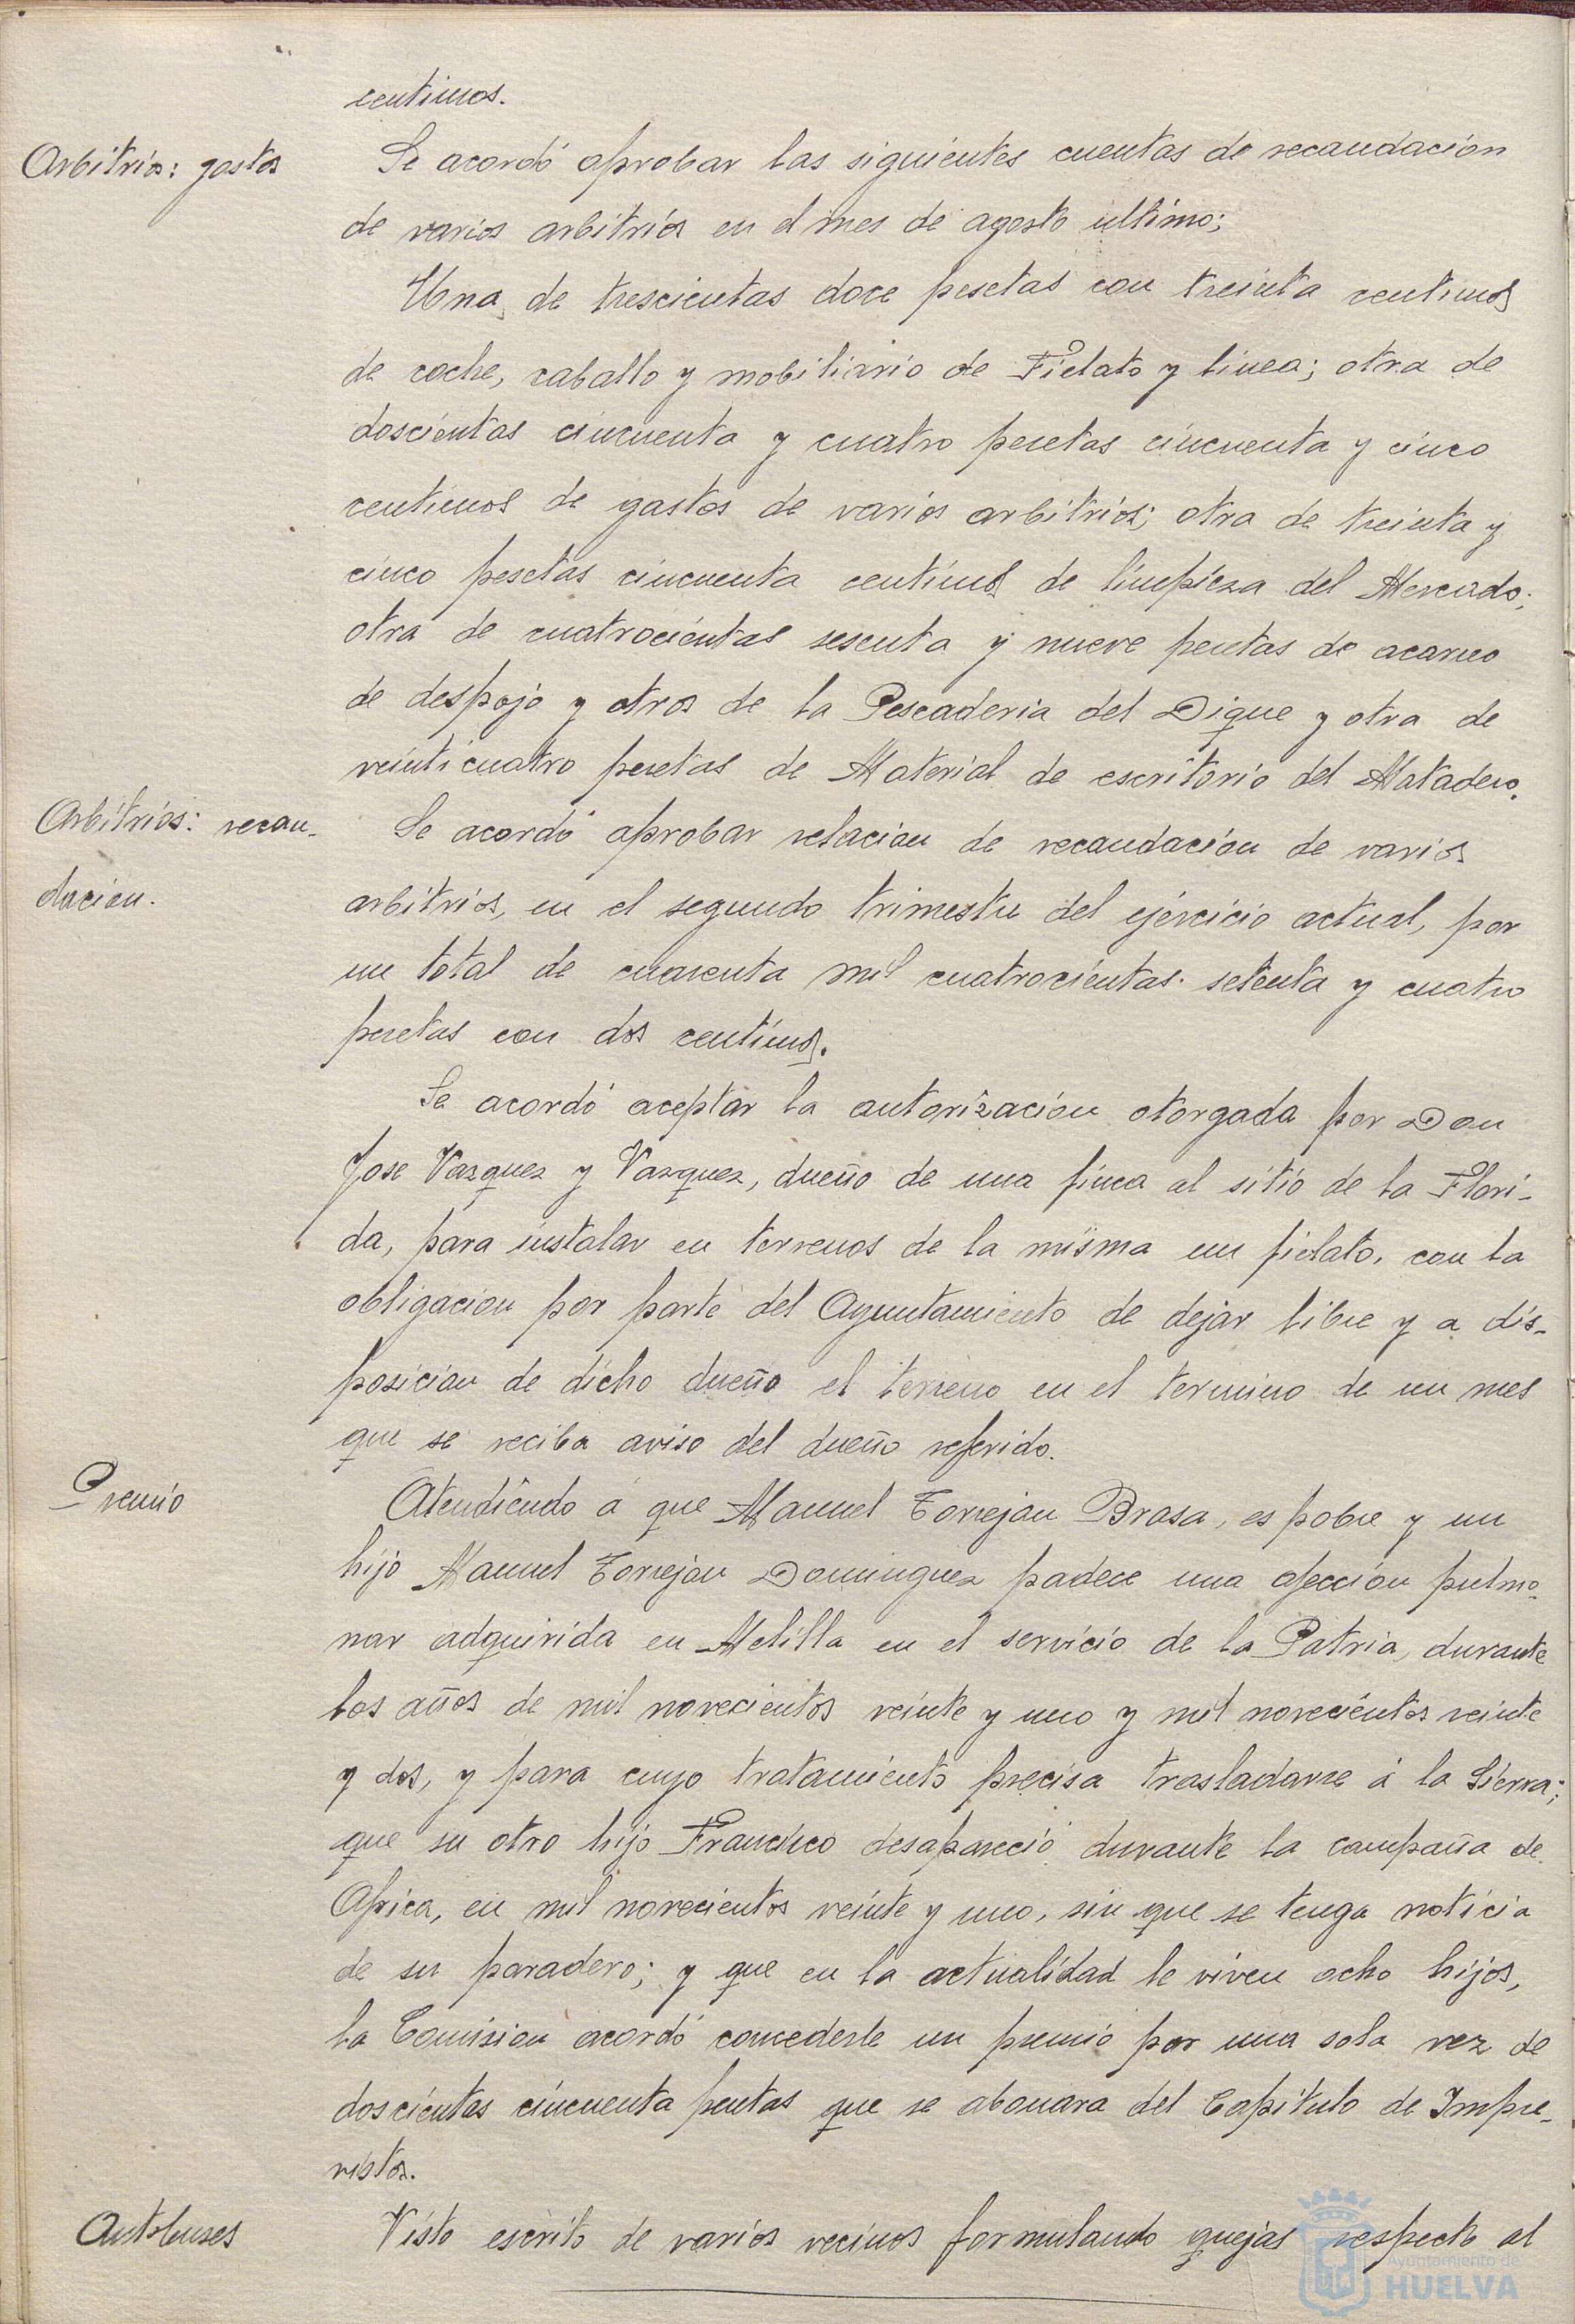 centimos.
Arbitrios: gastos
Se acordó aprobar las siguientes cuentas de recaudación
de varios arbitrios en el mes de agosto ultimo;
Una de trescientas doce pesetas con treinta centimos
de coche, caballo y mobiliario de Fielato y linea; otra de
doscientas cincuenta y cuatro pesetas cincuenta y cinco
centimos de gastos de varios arbitrios; otra de treinta y
cinco pesetas cincuenta centimos de limpieza del Mercado;
otra de cuatrocientas sesenta y nueve pesetas de acarreo
de despojo y otros de la Pescaderia del Dique y otra de
veinticuatro pesetas de Material de escritorio del Matadero.
Arbitrios: recau-
dacion.
Se acordó aprobar relacion de recaudación de varios
arbitrios, en el segundo trimestre del ejercicio actual, por
un total de cuarenta mil cuatrocientas setenta y cuatro
pesetas con dos centimos.
Se acordó aceptar la autorizacion otorgada por Don
Jose Vazquez y Vazquez, dueño de una finca al sitio de la Flori-
da, para instalar en terrenos de la misma un fielato, con la
obligacion por parte del Ayuntamiento de dejar libre y a dis-
posicion de dicho dueño el terreno en el termino de un mes
que se reciba aviso del dueño referido.
Premio
Atendiendo á que Manuel Torrejon Brasa, es pobre y un
hijo Manuel Torrejon Dominguez padece una afección pulmo-
nar adquirida en Melilla en el servicio de la Patria, durante
los años de mil novecientos veinte y uno y mil novecientos veinte
y dos, y para cuyo tratamiento precisa trasladarse á la Sierra;
que su otro hijo Francisco desapareció durante la campaña de
Africa, en mil novecientos veinte y uno, sin que se tenga noticia
de su paradero; y que en la actualidad le viven ocho hijos,
la Comision acordó concederle un premio por una sola vez de
doscientas cincuenta pesetas que se abonara del Capitulo de Impre-
vistos.
Autobuses
Visto escrito de varios vecinos formulando quejas respecto al
Ayuntamiento de
HUELVA